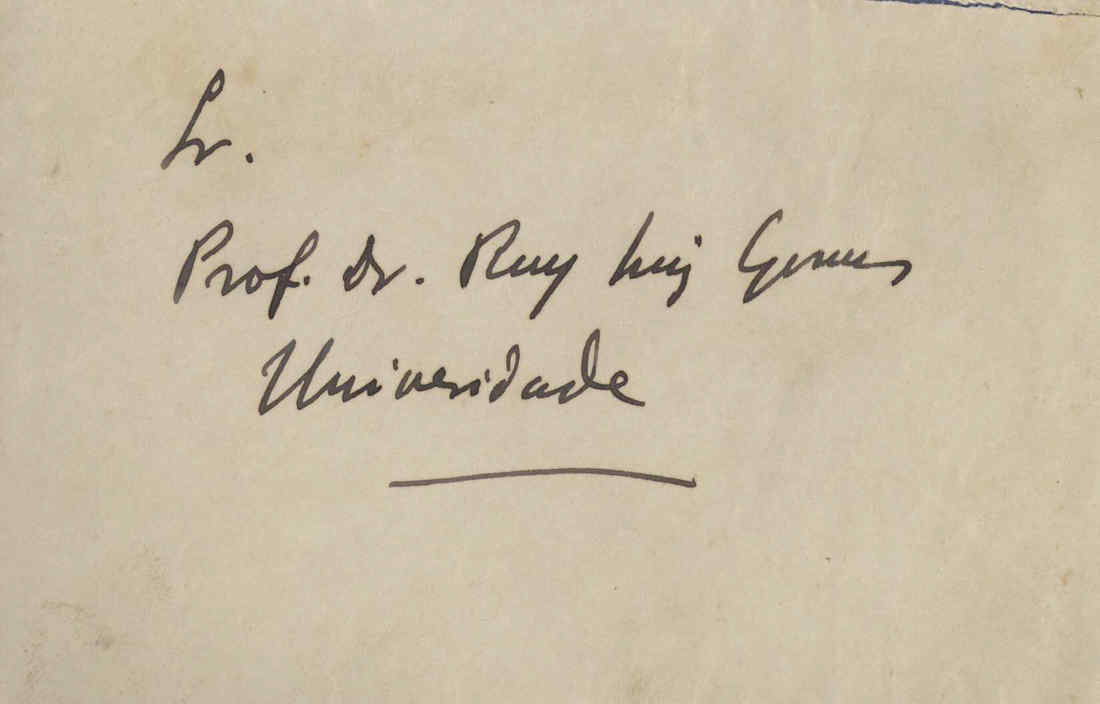 Sr.
Prof. Dr. Ruy Luiz Gomes
Universidade